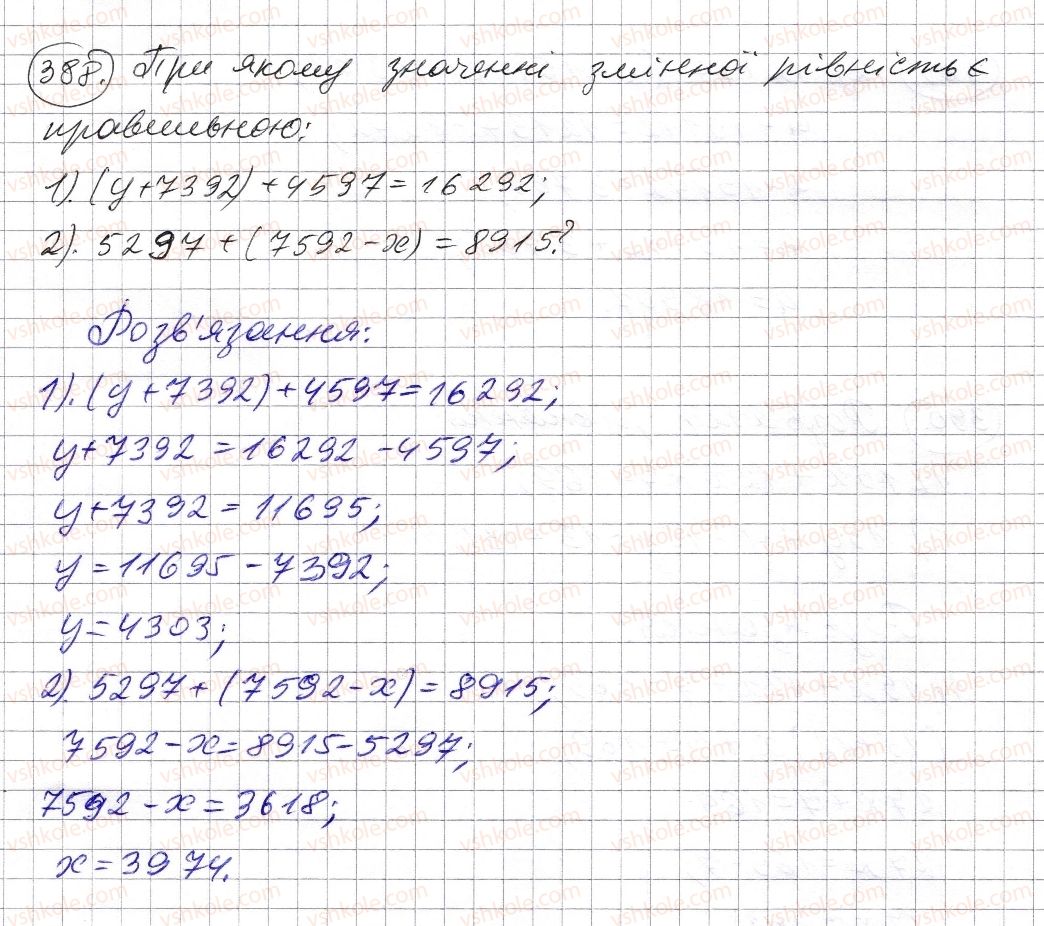 388. При якому значенні змінної рівність є
правильною:
1). (y+7392)+4597=16292;
2). 5297+(7592-x)=8915?
Розв'язання:
1). (y+7392)+4597=16292;
y+7392=16292-4597;
y+7392=11695;
y=11695-7392;
y=4303;
2). 5297+(7592-x)=8915;
7592-x=8915-5297;
7592-x=3618;
x=3974.